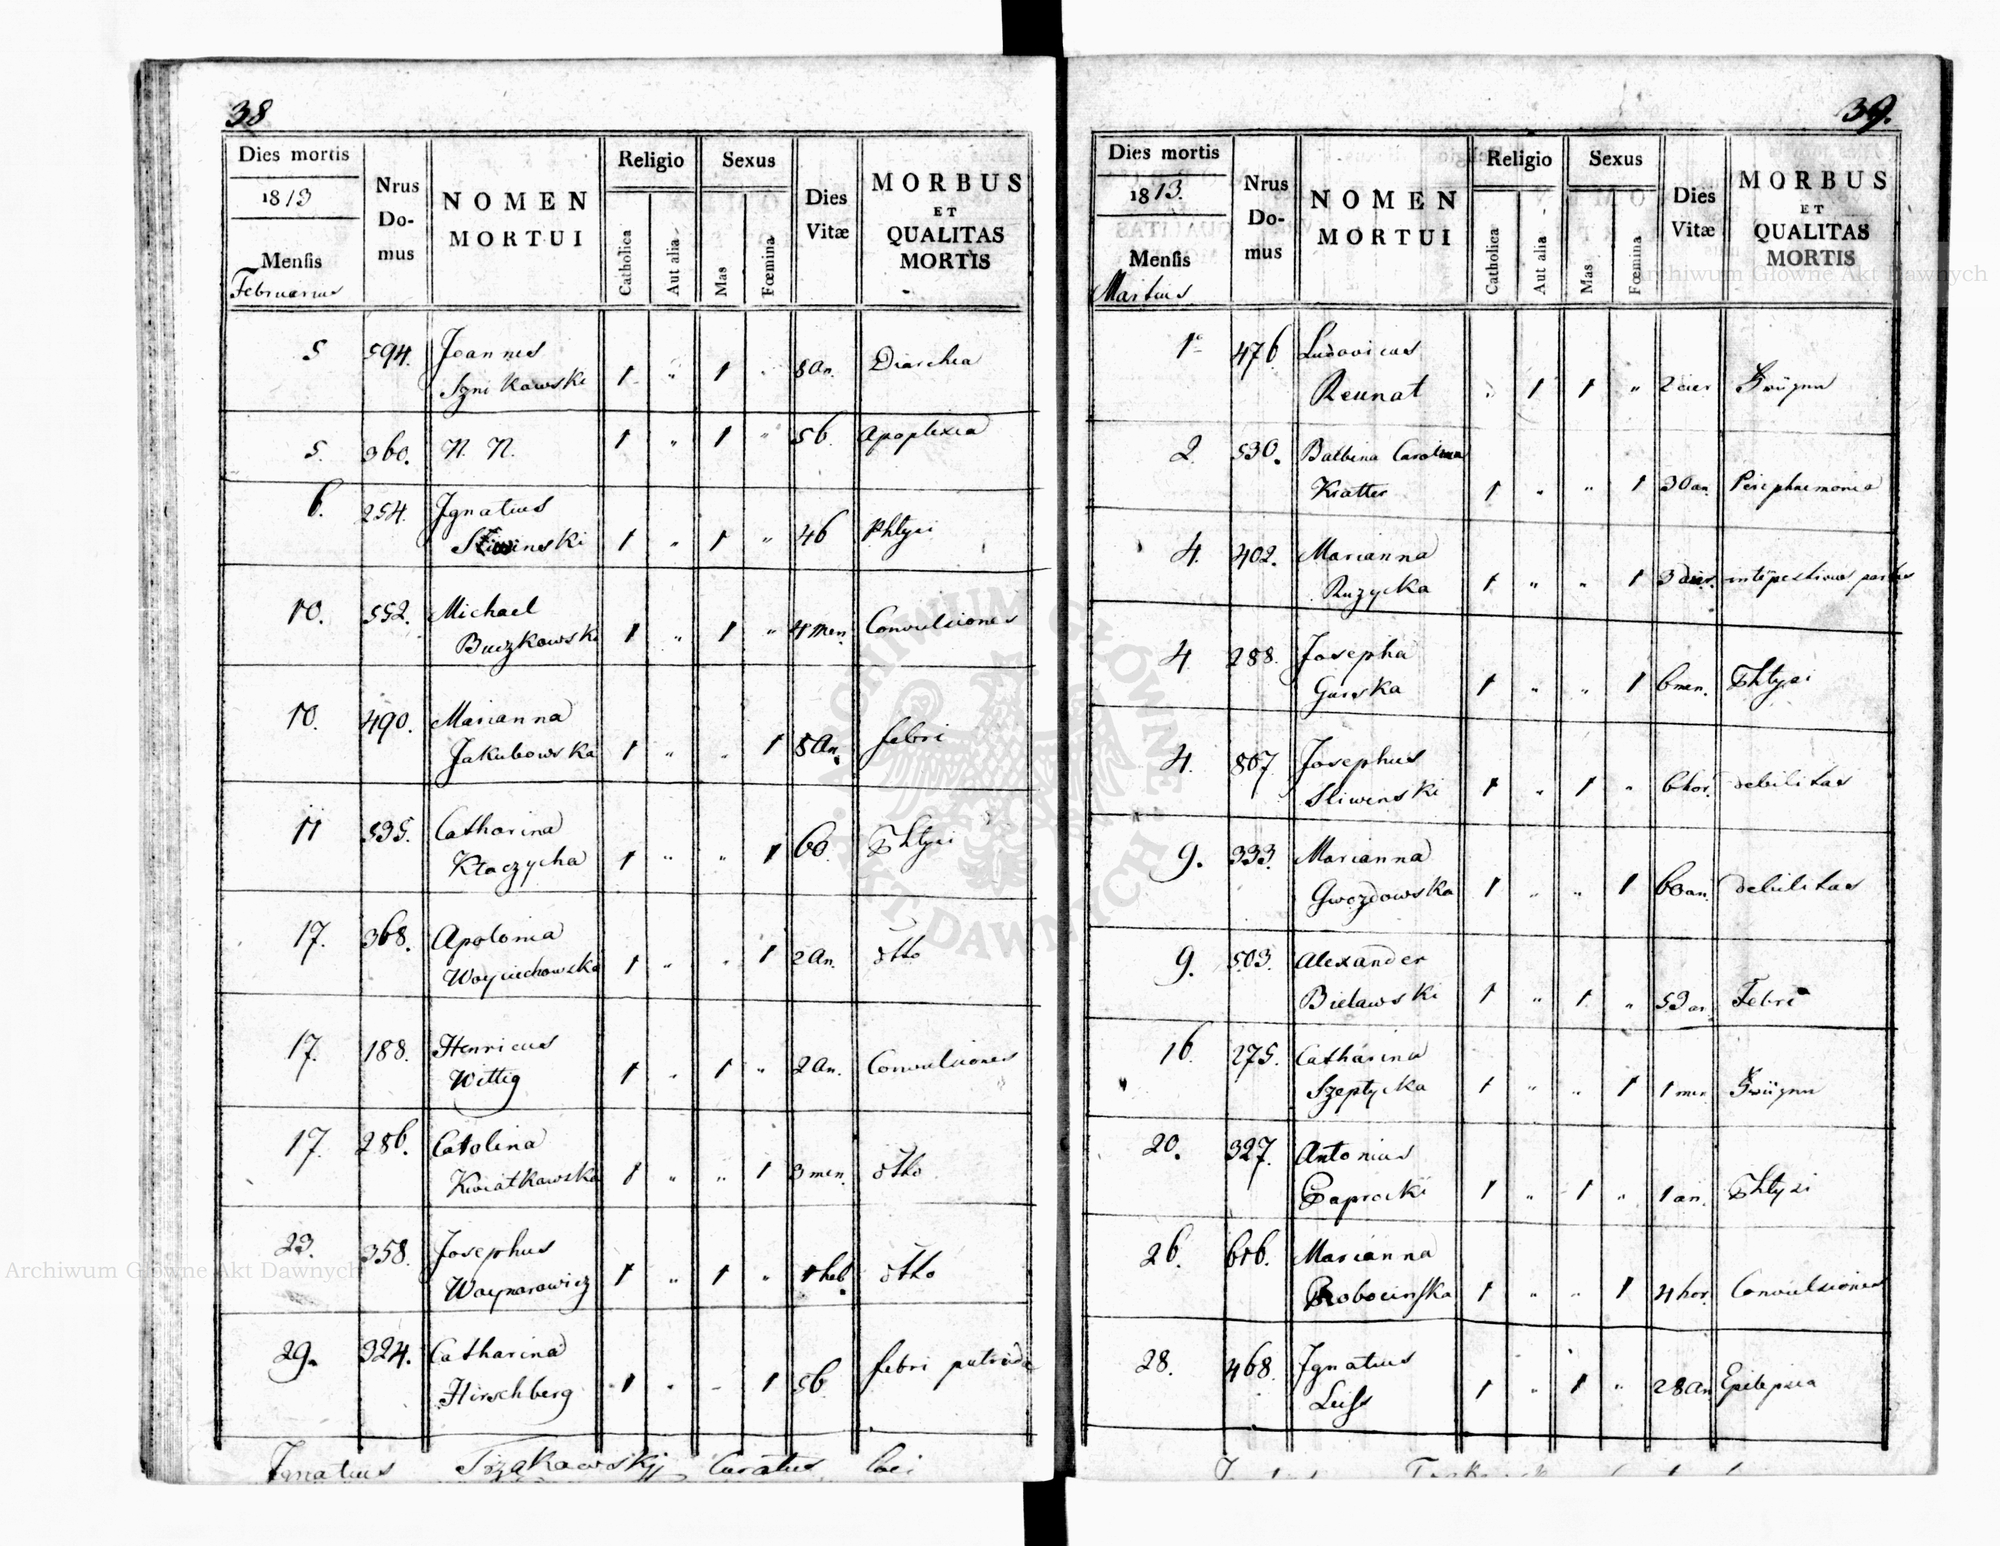 38
Dies mortis
1813
Mensis
Februarius
Nrus
Do-
mus
NOMEN
MORTUI
Religio
Catholica
Aut alia
Sexus
Mas
Fœmina
Dies
Vitæ
MORBUS
ET
QUALITAS
MORTIS
5 594. Joannes
1 " 1 " 8 An. Diarrhea
5. 360. N. N. 1 " 1 " 56 Apoplexia
6. 254. Ignatius
1 " 1 " 46 Phtysi
10. 552. Michael
Buczkowski 1 " 1 " 4 men. Convulsiones
10. 490. Marianna
Jakubowska 1 " " 1 8 An. febri
11 535. Catharina
Kłaczycha 1 " " 1 60. Phtysi
17. 368. Apolonia
Woyciechowska 1 " " 1 2 An. dtto
17. 188. Henricus
Wittig 1 " 1 " 2 An. Convulsiones
17. 286. Carolina
Kwiatkowska 1 " " 1 3 men. dtto
23. 358. Josephus
Woynarowicz 1 " 1 " 1 heb. dtto
29. 324. Catharina
Hirschberg 1 " " 1 56 febri putrida
Ignatius Trzakowskij Curatus loci
39.
Dies mortis
1813.
Mensis
Martius
Nrus
Do-
mus
NOMEN
MORTUI
Religio
Catholica
Aut alia
Sexus
Mas
Fœmina
Dies
Vitæ
MORBUS
ET
QUALITAS
MORTIS
1 476 Ludovicus
Reunat " 1 1 " 2 dier
2. 530. Balbina Carolina
Kratter 1 " " 1 30 an. Peripneumonia
4. 402. Marianna
Ruzycka 1 " " 1 3 dier. partus
4 288. Josepha
Gurska 1 " " 1 6 men. Phtysi
4. 807 Josephus
Sliwinski 1 " 1 " 6 hor. debilitas
9. 333. Marianna
Gwozdowska 1 " " 1 60 an. debilitas
9. 503. Alexander
Bielawski 1 " 1 " 53 an. Febri
16. 275. Catharina
Szeptycka 1 " " 1 1 men
20. 327. Antonius
Paprocki 1 " 1 " 1 an. Phtysi
26. 616. Marianna
Robocinska 1 " " 1 4 hor. Convulsiones
28. 468. Ignatius
Leiss 1 " 1 " 28 An Epilepsia
Archiwum Główne Akt Dawnych
Archiwum Główne Akt Dawnych
ARCHIWUM GŁÓWNE
AKT DAWNYCH